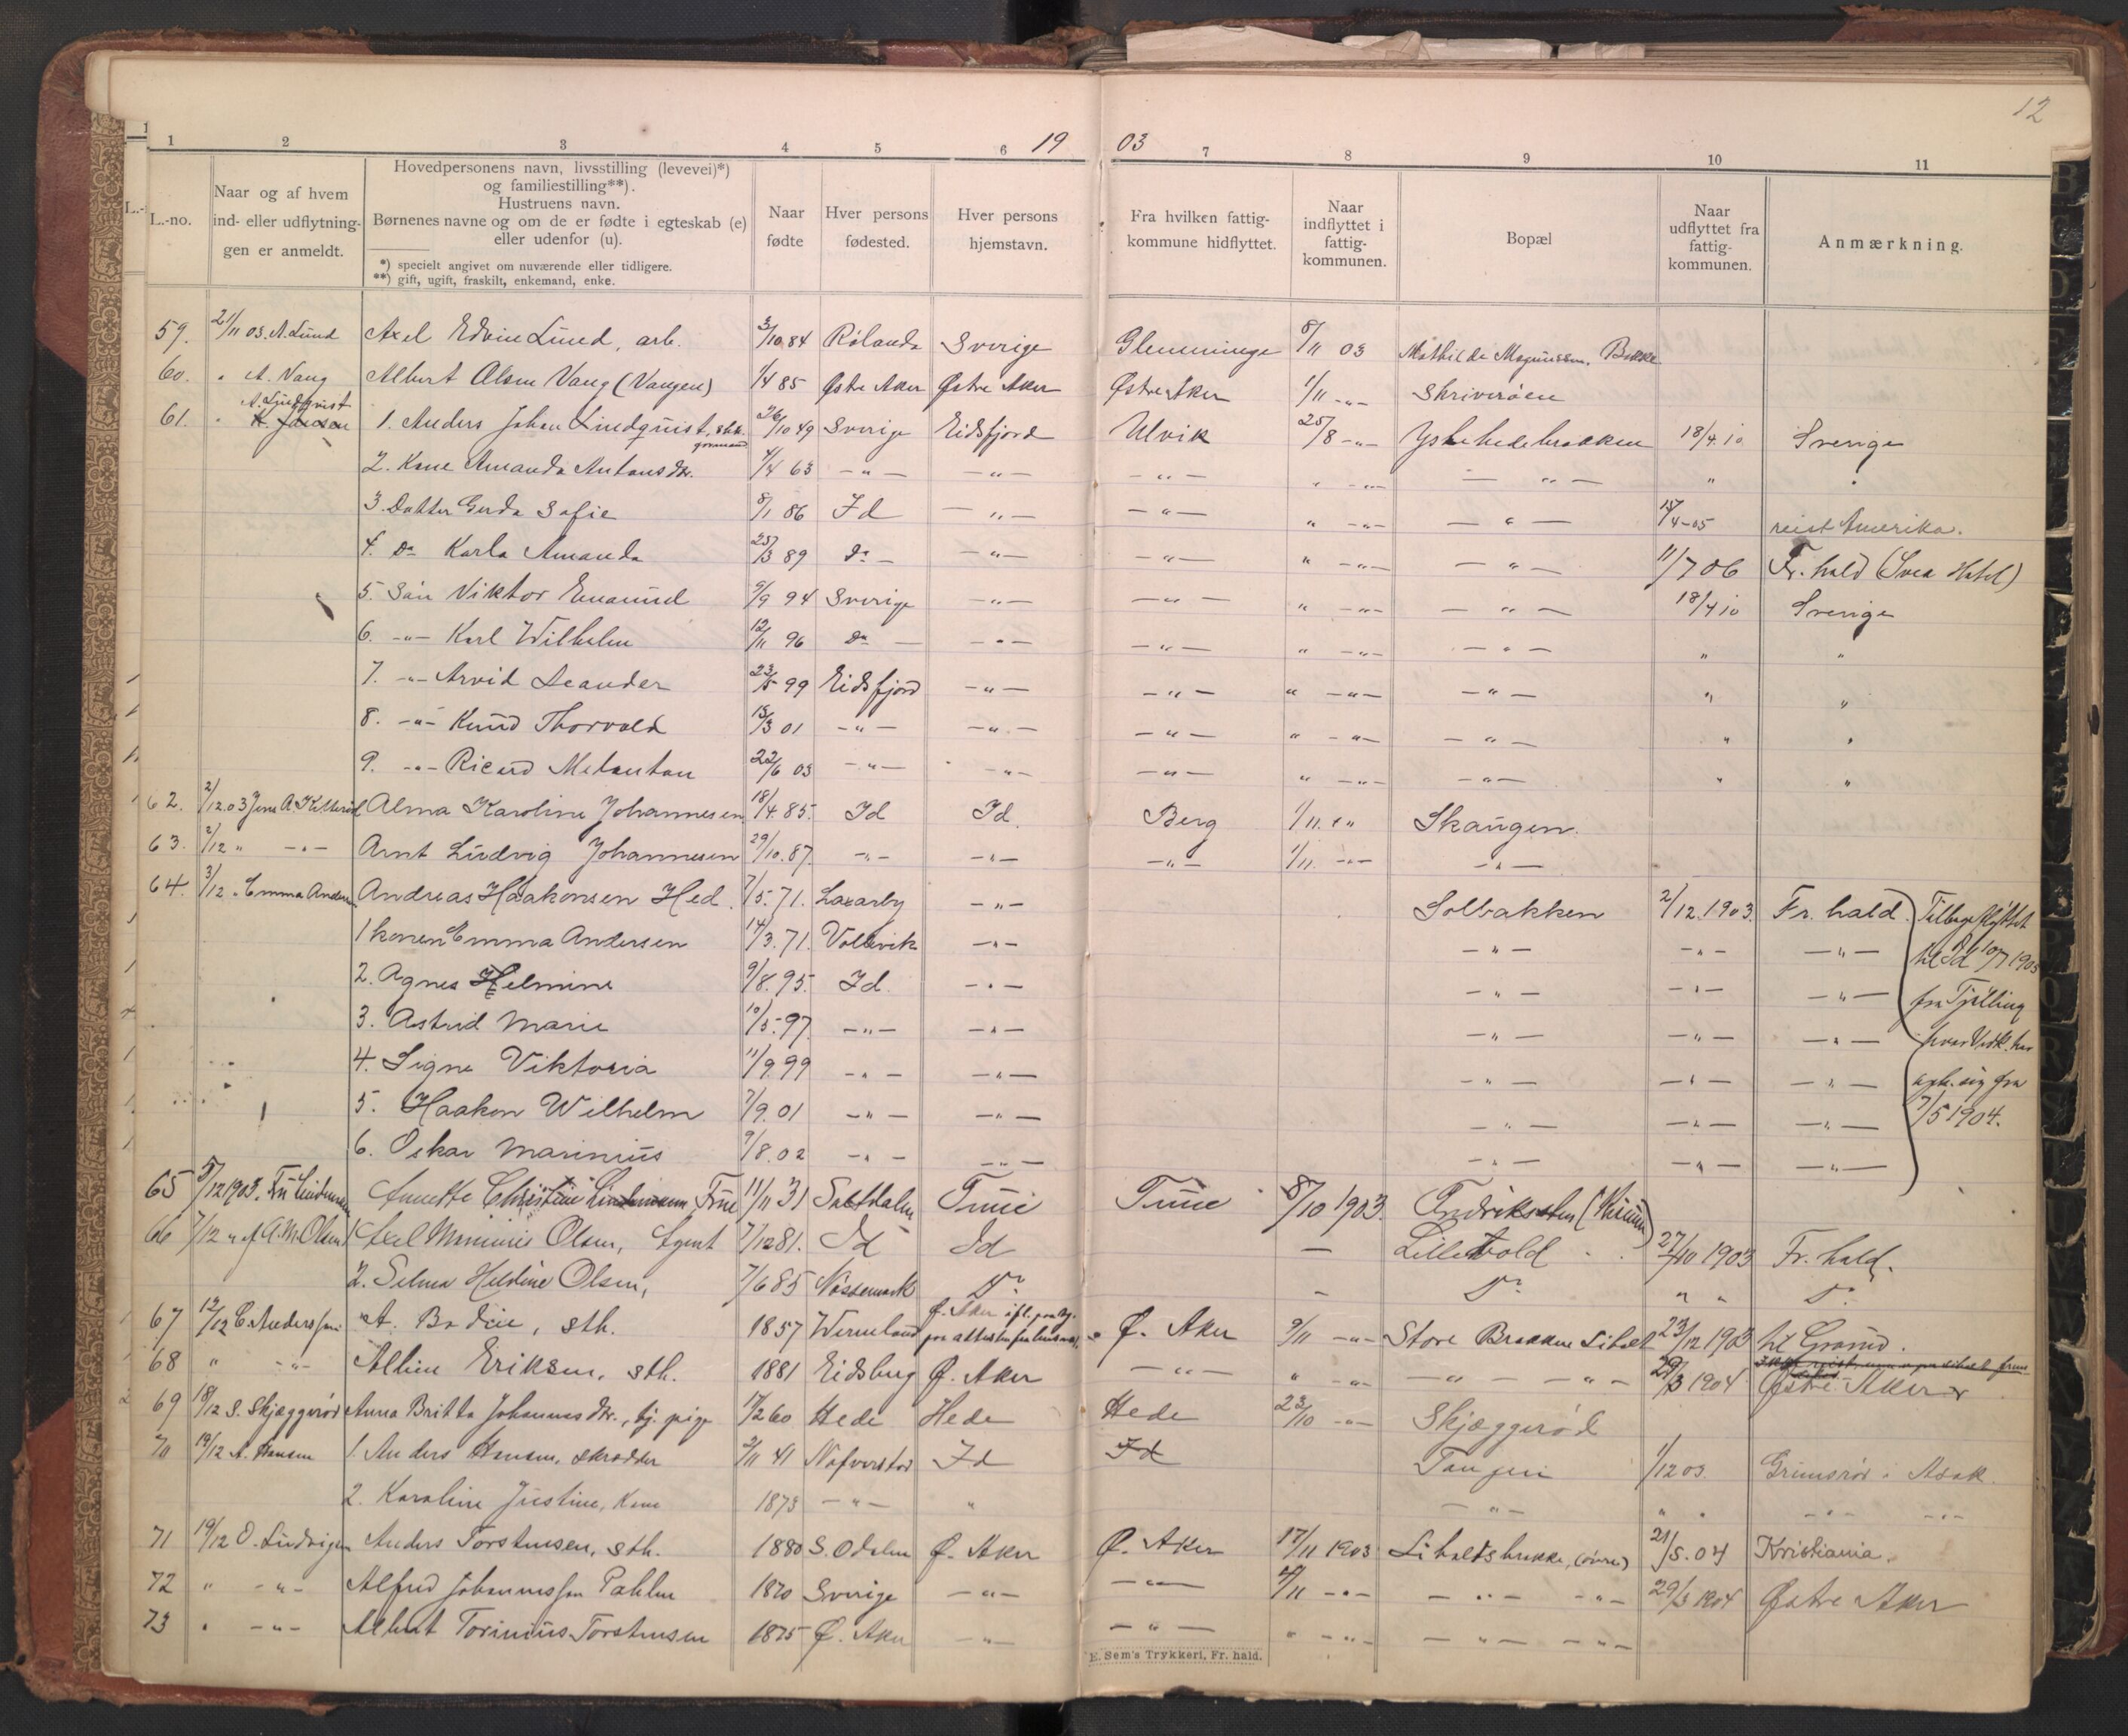 12
19 03
1 2 3 4 5 6 7 8 9 10 11
L.-no.
Naar og af hvem
ind- eller udflytnin-
gen er anmeldt.
Hovedpersonens navn, livsstilling (levevei)*)
og familiestilling**).
Hustruens navn.
Børnenes navne og om de er fødte i egteskab (e)
eller udenfor (u).
*) specielt angivet om nuværende eller tidligere.
**) gift, ugift, fraskilt, enkemand, enke.
Naar
fødte
Hver persons
fødested.
Hver persons
hjemstavn.
Fra hvilken fattig-
kommune hidflyttet.
Naar
indflyttet i
fattig-
kommunen.
Bopæl
Naar
udflyttet fra
fattig-
kommunen.
Anmærkning.
59. 21/11 03. A. Lund Axel Edvin Lund, arb. 3/10 84 Rölanda Sverige Glemminge 8/11 03 Mathilde Magnussen, Bakke
60. " A. Vang Albert Olsen Vang (Vangen) 1/4 85 Østre Aker Østre Aker Østre Aker 1/11 -"- Skriverøen
61. " A. Lindqvist 1. Anders Johan Lindquist, sth. 26/10 49 Sverige Eidsfjord Ulvik 25/8 -"- Ystehedebrakken 18/4.10 Sverige
2. Kone Amanda Antonsdtr. 4/4 63 -"- -"- -"- " -"- -"- " "
3. Datter Gerda Sofie 8/1 86 Id -"- -"- " -"- -"- 15/4-05 reist Amerika.
4. Do Karla Amanda 25/3 89 Do- -"- -"- " -"- -"- 11/7 06 Fr.hald (Svea Hotel)
5. Søn Viktor Emanuel 9/9 94 Sverige -"- -"- " -"- -"- 18/4 10 Sverige
6. -"- Karl Wilhelm 12/11 96 Do- -"- -"- " -"- -"- " "
7. -"- Arvid Leander 23/5 99 Eidsfjord -"- -"- " -"- -"- " "
8. -"- Knud Thorvald 13/3 01 -"- -"- -"- " -"- -"- " "
9. -"- Ricard Metanton 22/6 03 -"- -"- -"- " -"- -"- " "
62. 2/12.03 Jens A. Kitterød Alma Karoline Johannesen 18/4.85. Id Id. Berg 1/11. "" Skaugen.
63. 2/12 " -"- Arnt Ludvig Johannesen 29/10.87. -"- -"- -"- 1/11. -"- -"-
64. 3/12 " Emma Andersen Andreas Haakonsen Hed. 7/5.71. Laxarby -"- Solbakken 2/12.1903. Fr.hald. Tilbageflyttet
1 konen Emma Andersen 14/3.71. -"- -"- -"- -"- til Id 10/7 1905
2. Agnes Helmine 9/8.95. Id. -"- -"- -"- -"- fra Tjølling
3. Astrid Marie 10/5.97. -"- -"- -"- -"- -"- hvor Vedk. har
4. Signe Viktoria 11/9.99 -"- -"- -"- -"- -"- oph. sig fra
5. Haakon Wilhelm 7/9.01 -"- -"- -"- -"- -"- 7/5 1904.
6. Oskar Marinius 9/8.02 -"- -"- -"- -"- -"-
65 5/12 1903. Fru Lindemann Annette Christine Lindemann Frue 11/11 31 Saltdalen Tune Tune 8/10 1903. Fredriksten
66 7/12 " af A.M. Olsen 1. Axel Minius Olsen, Agent 7/12 81. Id Id - Lillebold 27/10 1903 Fr.hald.
2. Selma Heldine Olsen, 7/6 85 Nössemark Do - Do " " Do
67 12/12 C. Anderssen A. Bodin, sth. 1857 Wermland Ø. Aker Ø. Aker 9/11 -"- Store Brakken Liholt 23/12 1903 til Grand.
68 " -"- Albin Eriksen, sth. 1881 Eidsberg Ø. Aker -"- " -"- -"- -"- 29/3 1904 Østre Aker
69 18/12 S. Skjæggerød Anna Britta Johannesdtr., tj. pige 17/2 60 Hede Hede Hede 23/10 -"- Skjæggerød
70 19/12 A. Hansen 1. Anders Hansen, skrædder 2/11 41 Nafverstad Id Id Tangen 1/12 03. Grimsrød i Asak.
2. Karoline Justine, Kone 1873 -"- " -"- " " -"- -"-
71 19/12 O. Ludvigsen Anders Torstensen, sth. 1880 S. Odalen Ø. Aker Ø. Aker 17/11 1903 Liholtsbrakke, (øvre) 21/5.04 Kristiania.
72 " -"- Alfred Johannessen Pahlm 1870 Sverige -"- -"- 4/11 -"- -"- -"- 29/3 1904 Østre Aker
73 " -"- Albert Torinius Torstensen 1875 Ø. Aker -"- -"- " -"- -"- -"-
E. Sem's Trykkeri, Fr. hald.